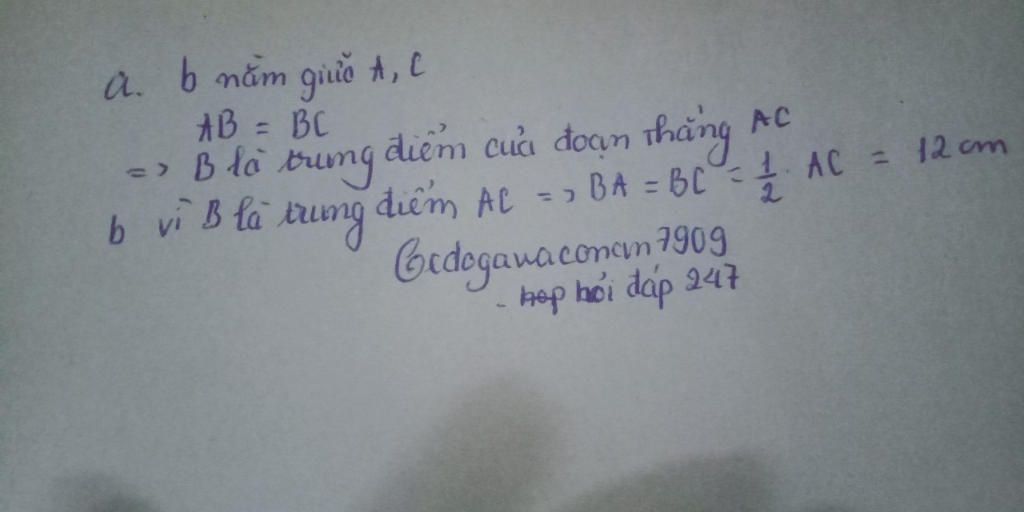 a. b nằm giữa A, C
AB = BC
=> B là trung điểm của đoạn thẳng AC
b vì B là trung điểm AC => BA = BC = 1/2 . AC = 12 cm
- hỏi đáp 247